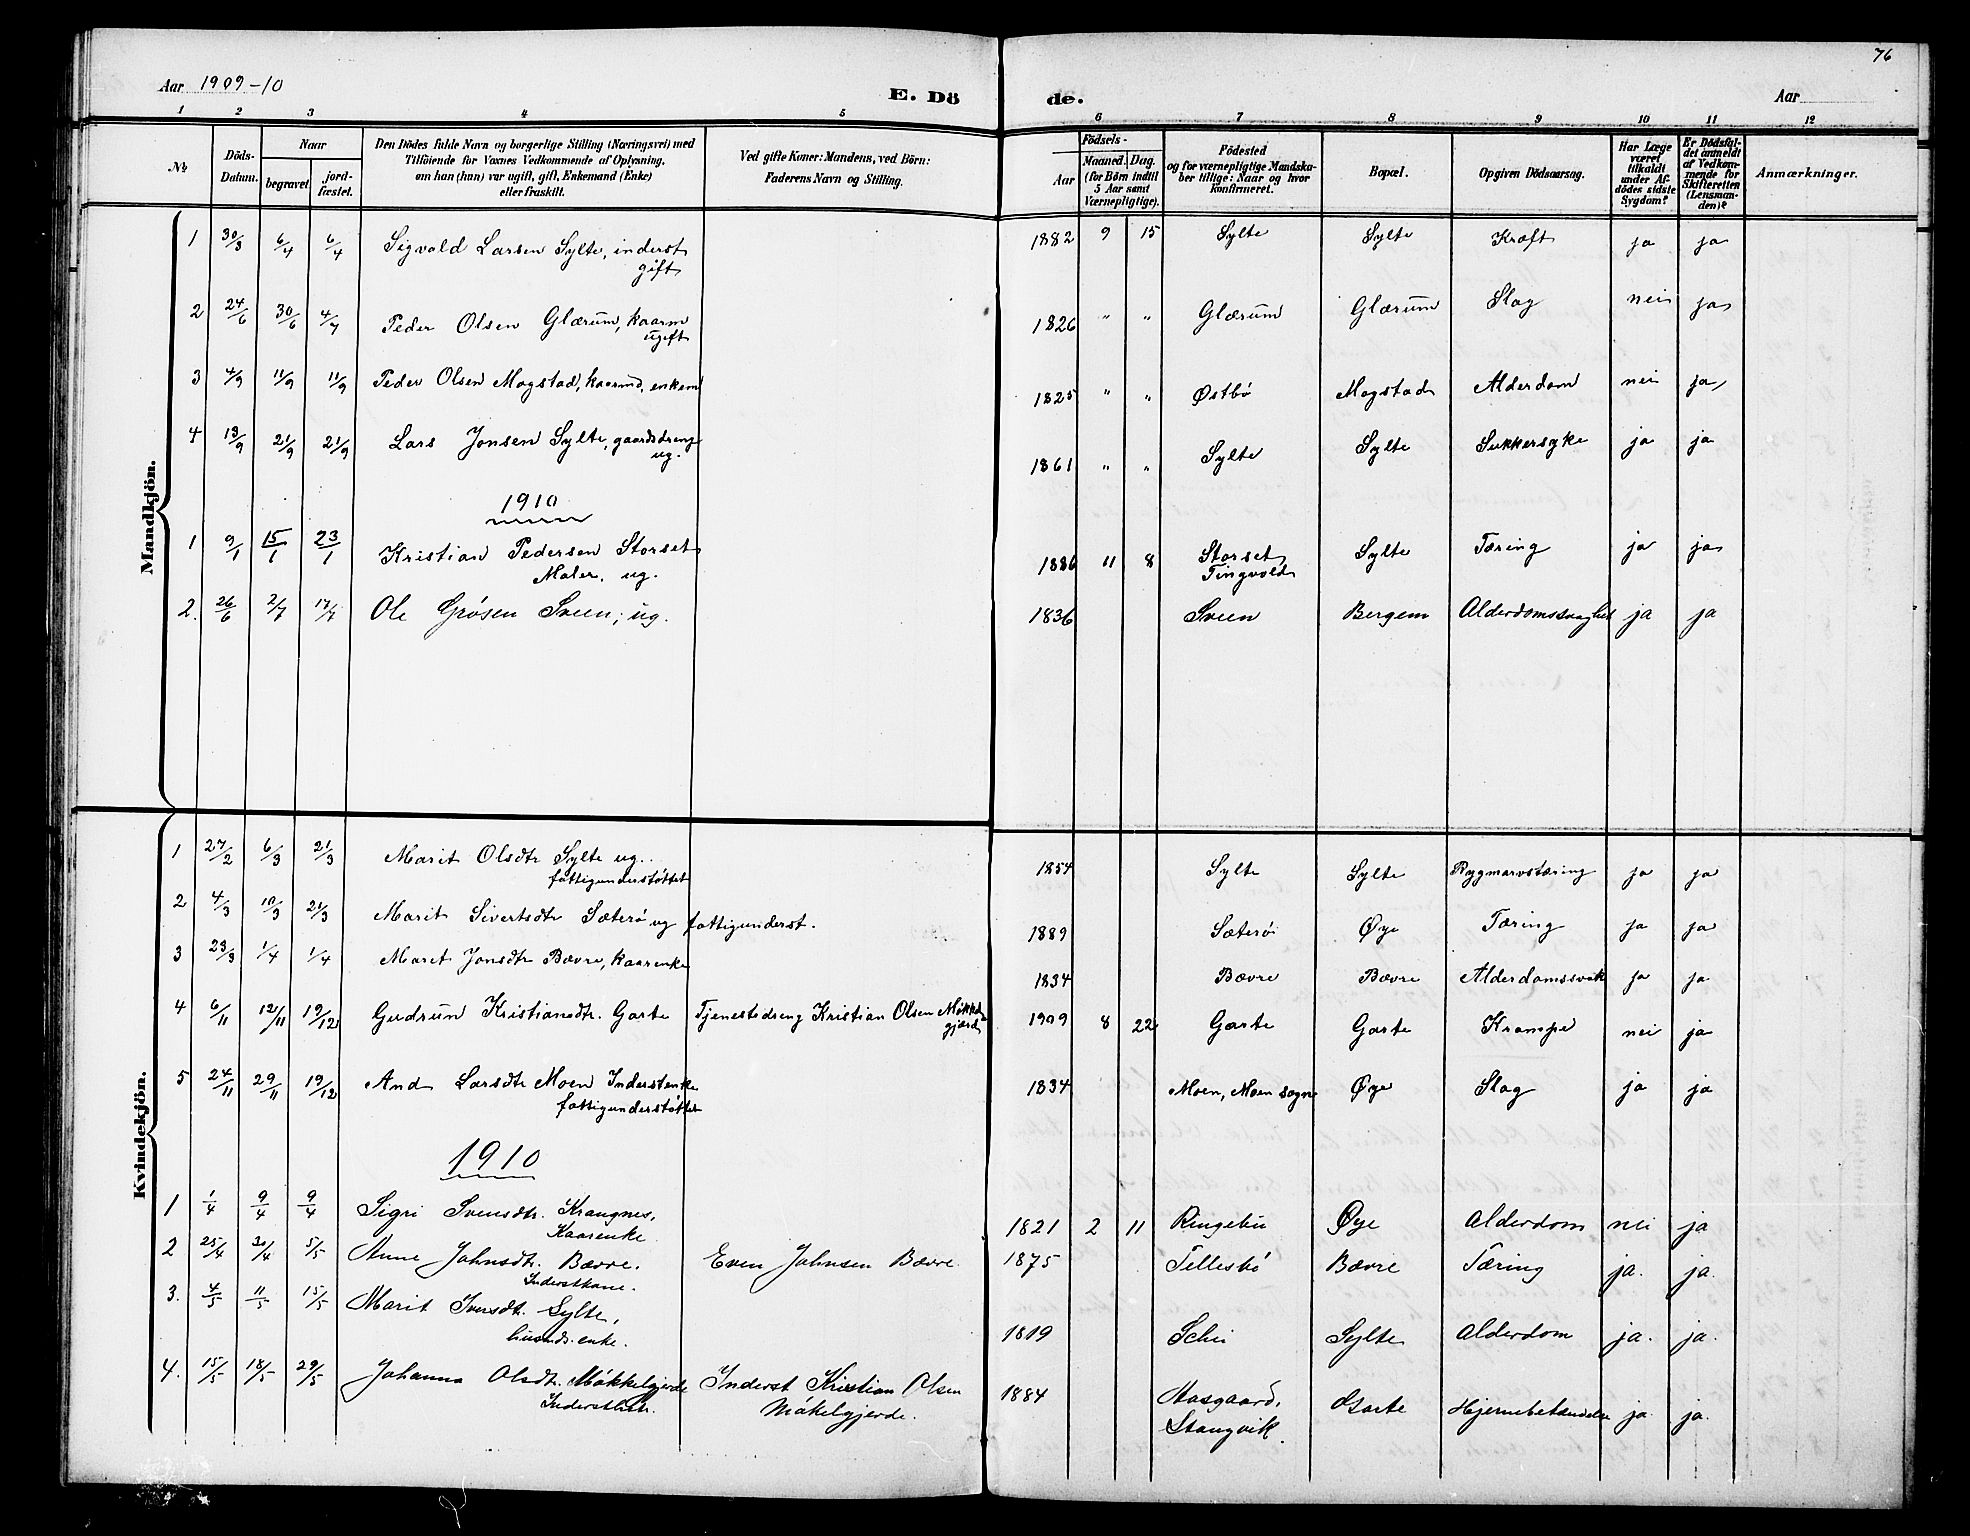 76
Aar 1909-10
E. Dö de.
Aar
1 2 3 4 5 6 7 8 9 10 11 12
No
Döds-Datum.
Naar
begravet.
jord-fæstet.
Den Dödes fulde Navn og borgerlige Stilling (Næringsvei) med
Tilföiende for Voxnes Vedkommende af Oplysning.
om han (hun) var ugift, gift, Enkemand (Enke)
eller fraskilt.
Ved gifte Koner: Mandens, ved Börn:
Faderens Navn og Stilling.
Aar
Födsels-
Maaned. Dag.
(for Börn indtil
5 Aar samt
Værnepligtige).
Födested
og for værnepligtige Mandska-
ber tillige: Naar og hvor
konfirmeret.
Bopæl.
Opgiven Dödsaarsag.
Har Læge
været
tilkaldt
under Af-
dödes sidste
Sygdom?
Er Dödsfal-
det anmeldt
af Vedkom-
mende for
Skifteretten
(Lensman-
den)?
Anmærkninger.
Mandkjön.
1 30/3 6/4 6/4 Sigvald Larsen Sylte, inderst 1882 9 15 Sylte Sylte Kræft ja ja
gift
2 24/6 30/6 4/7 Peder Olsen Glærum, kaarm 1826 " " Glærum Glærum Slag nei ja
ugift
3 4/9 11/9 11/9 Peder Olsen Mogstad, kaarmd, enkem 1825 " " Østbø Mogstad Alderdom nei ja
4 13/9 21/9 21/9 Lars Jonsen Sylte, gaardsdreng 1861 " " Sylte Sylte Sukkersyke ja ja
ug.
1910
1 9/1 15/1 23/1 Kristian Pedersen Storset 1886 11 8 Storset Sylte Tæring ja ja
Maler, ug. Tingvold
2. 26/6 2/7 17/7 Ole Grøsen Sveen, ug. 1836 Sveen Bergem Alderdomssvaghet ja ja
Kvindekjön.
1 27/2 6/3 21/3 Marit Olsdtr Sylte ug. 1854 Sylte Sylte Rygmarvstæring ja ja
fattigunderstøttet
2 4/3 10/3 21/3 Marit Sivertsdtr Sæterø ug fattigunderst. 1889 Sæterø Øye Tæring ja ja
3 23/3 1/4 1/4 Marit Jonsdtr Bævre, kaarenke 1834 Bævre Bævre Alderdomssvak ja ja
4 6/11 12/11 19/12 Gudrun Kristiansdtr. Garte Tjenestsdreng Kristian Olsen Møkkel- 1909 8 22 Garte Garte Krampe nei ja
gjerde
5 24/11 29/11 19/12 And Larsdtr Moen Inderstenke 1834 Moen, Moen sogn Øye Slag ja ja
fattigunderstøttet
1910
1 1/4 9/4 9/4 Sigri Svensdtr. Krangnes, 1821 2 11 Ringebu Øye Alderdom nei ja
Kaarenke
2 25/4 30/4 5/5 Anne Johnsdtr. Bævre. Even Johnsen Bævre. 1875 Tellesbø Bævre Tæring ja. ja.
Inderstkone.
3. 4/5 11/5 15/5 Marit Iversdtr. Sylte, 1819 Schei Sylte Alderdom ja. ja.
husmds. enke.
4. 15/5 18/5 29/5 Johanna Olsdtr. Møkkelgjerde Inderst Kristian Olsen 1884 Aasgaard, Garte Hjernebetændelse ja ja.
Møkelgjerde. Stangvik.